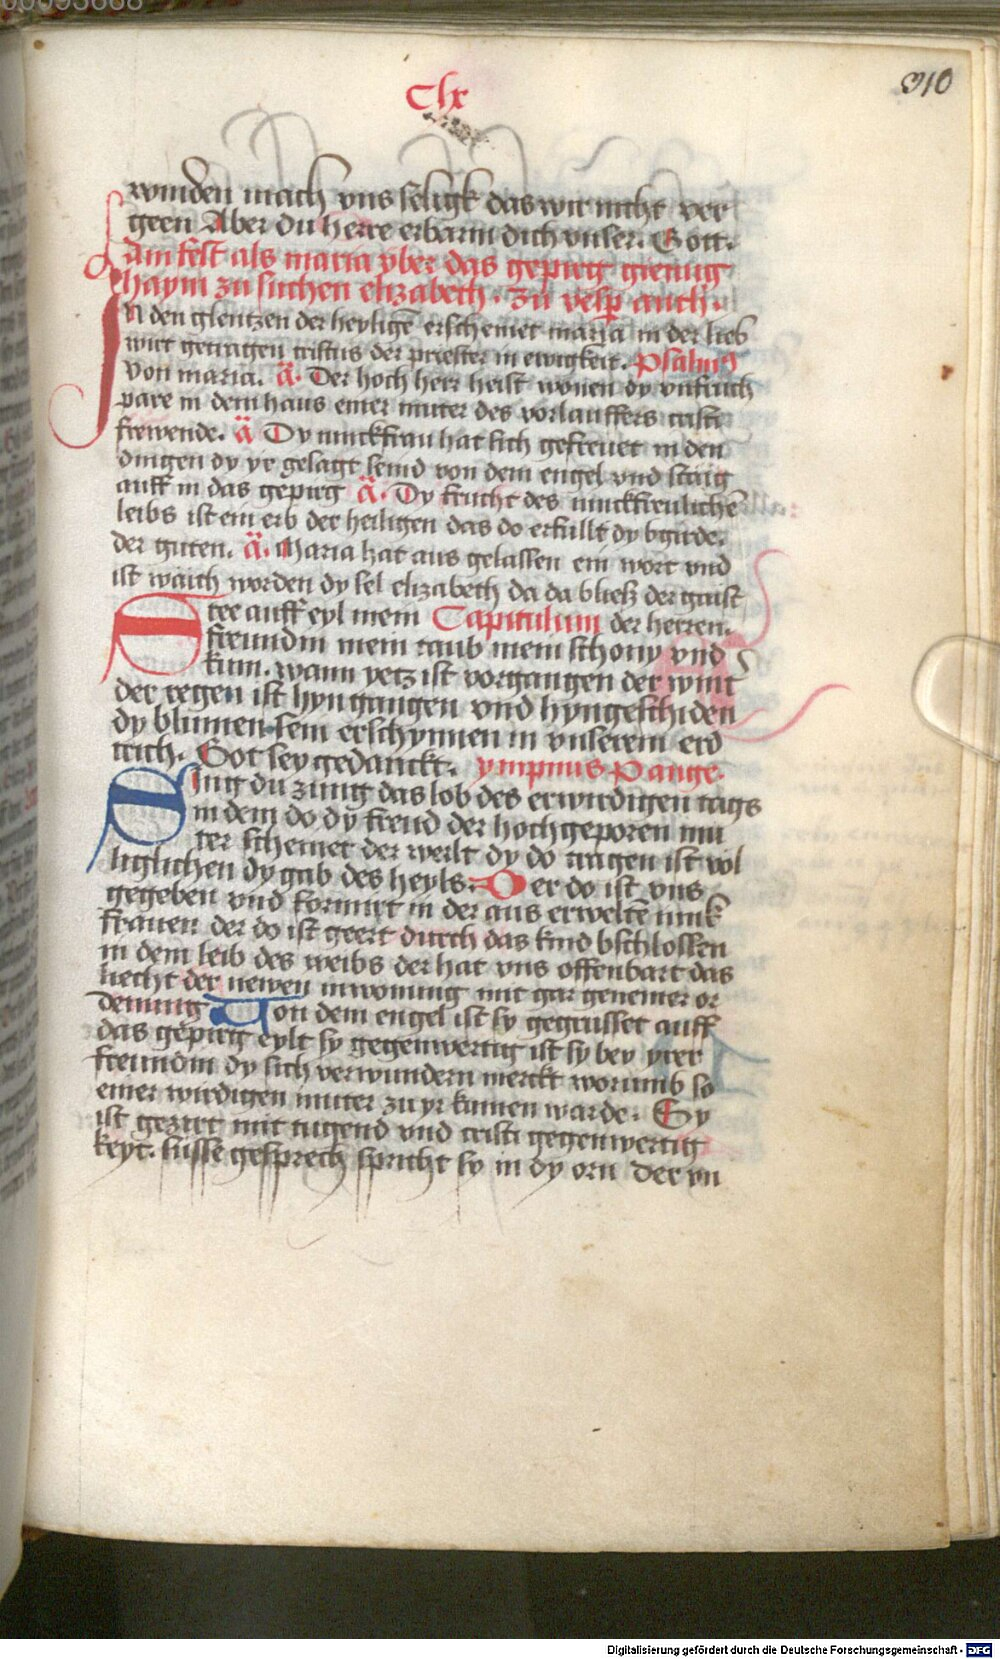 310
Clx
wunden mach vns seligk das wir nicht ver
geen Aber du herre erbarm dich vnser. Gott.
Am fest als maria yber das gepirg gieng
haym zu suchen elizabeth. zu vesp auch.
In den glentzen der heyligē erscheinet maria in der lieb
wirt getragen cristus der priester in ewigkeit. Psalmꝰ
von maria. ā. Der hoch herr heist wonen dy vnfruch
pare in dem haus einer muter des vorlauffers cristi
frewende. ā Dy iunckfrau hat sich gefreuet in den
dingen dy yr gesagt seind von dem engel vnd staig
auff in das gepirg ā. Dy frucht des iunckfreulichē
leibs ist ein erb der heiligen das do erfullt dy bgirde.
der guten. ā. Maria hat aus gelassen ein wort vnd
ist waich worden dy sel elizabeth da da bliesz der gaist
Stee auff eyl mein Capitulum der herren.
freundin mein taub mein schony vnd
kum. wann yetz ist vorgangen der wint
der regen ist hyngangen vnd hyngeschiden
dy blumen sein erschynnen in vnserem erd
trich. Got sey gedanckt. ympnus Pange.
Sing du zung das lob des erwirdigen tags
in dem do dy freud der hochgeporen mu
ter scheinet der werlt dy do tragen ist vol
liglichen dy gab des heyls. Der do ist vns
gegeben vnd formirt in der aus erweltē iunk
frauen der do ist geert durch das kind bschlossen
in dem leib des weibs der hat vns offenbart das
liecht der newen inwonung mit gar genemer or
denung Von dem engel ist sy gegrusset auff
das gepirg eylt sy gegenwertig ist sy bey yrer
freundin dy sich verwundern merckt worumb so
einer wirdigen muter zu yr kumen warde. Sy
ist gezirt mit tugend vnd cristi gegenwertig
keyt. susse gesprech spricht sy in dy orn der vn
Digitalisierung gefördert durch die Deutsche Forschungsgemeinschaft - DFG